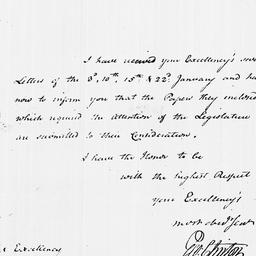 I have received your Excellency's
Letters of the 3d, 10th, 15th & 22d January and
now to inform you that the Papers they enclosed
which required the attention of the Legislature
are submitted to their Consideration.
I have the Honor to be
with the highest Respect
your Excellency's
most obedt
Geo. Clinton
Excellency